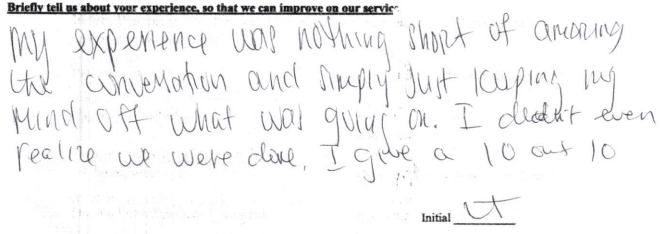 Briefly tell us about your experience, so that we can improve on our servic
My experience was nothing short of amazing
the conversation and simply Just keeping my
Mind off what was going on. I didn't even
realize we were done, I give a 10 out 10
Initial